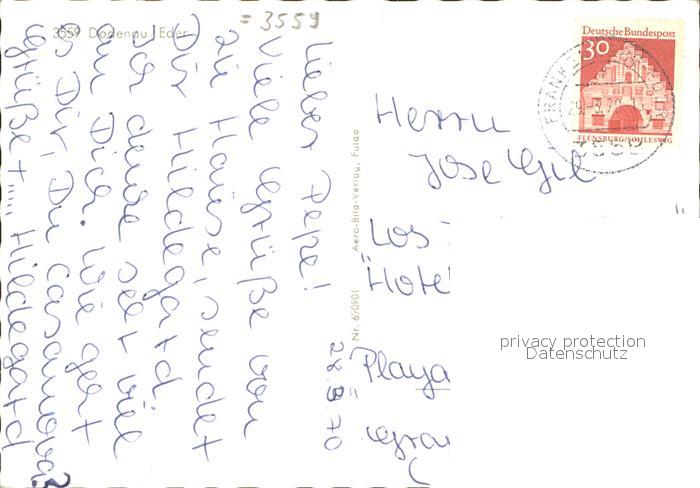 = 3559
3559 Dodenau / Eder
28.3.70
Lieber Pepe!
Viele Grüße von
zu Hause, sendet
Dir Hildegard.
Ich denke sehr viel
an Dich. Wie geht
es Dir, Du Casanova?
Grüße +.... Hildegard
Nr. 690901 Aero-Bild-Verlag, Fulda
Deutsche Bundespost
30
FLENSBURG/SCHLESWIG
Herrn
Jose Gil
Los
"Hotel
Playa
Gran
privacy protection
Datenschutz